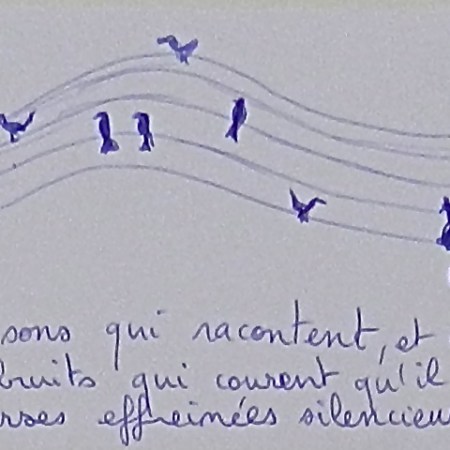 sons qui racontent, et
bruits qui courent qu'il
rses effreinées silencieu